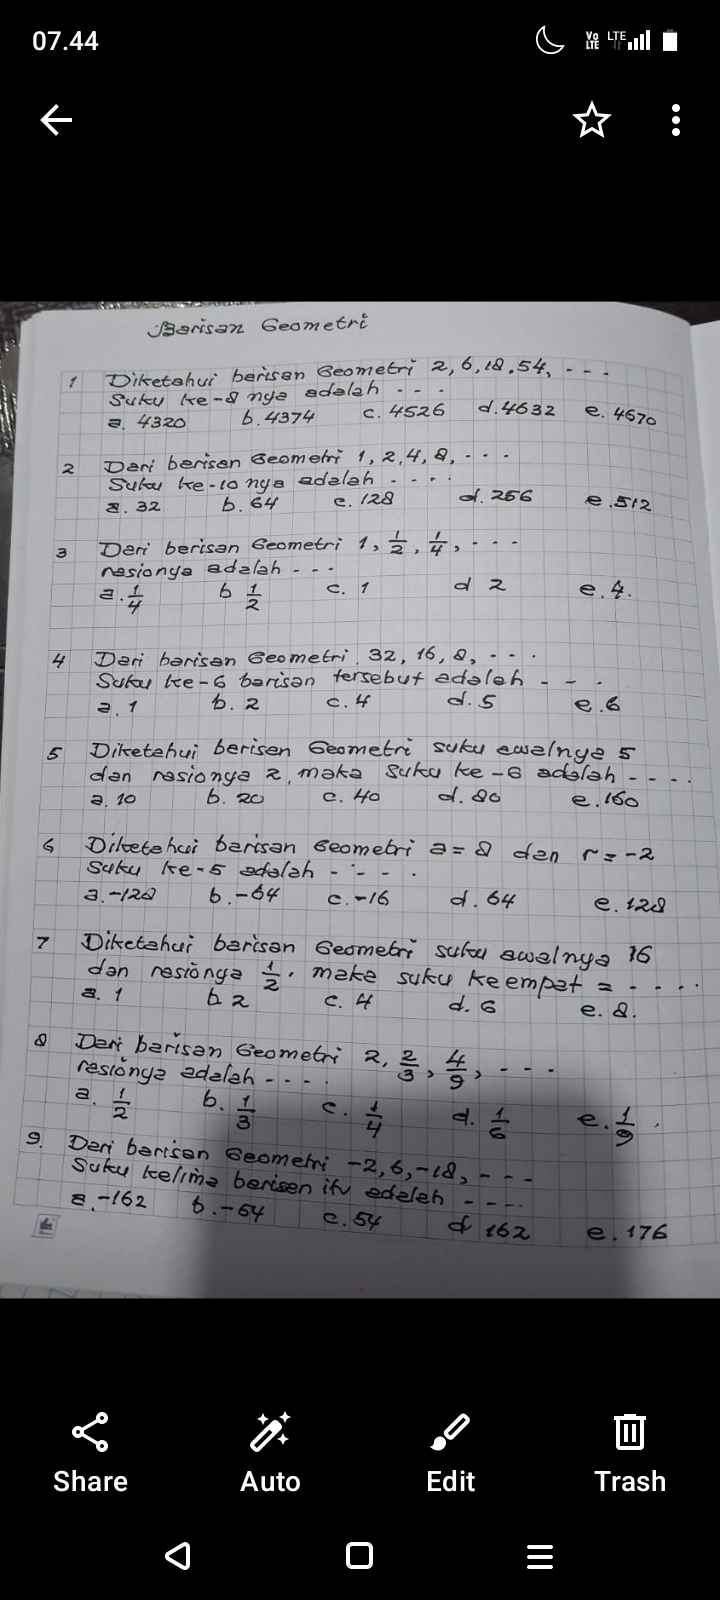 07.44
Vo LTE LTE
Barisan Geometri
1 Diketahui barisan Geometri 2, 6, 18, 54, ---
Suku ke-8 nya adalah ---.
a. 4320 b. 4374 c. 4526 d. 4632 e. 4670
2 Dari barisan Geometri 1, 2, 4, 8, ---
Suku ke-10 nya adalah ----
a. 32 b. 64 c. 128 d. 256 e. 512
3 Dari barisan Geometri 1, 1/2, 1/4, ---
rasionya adalah ---
a. 1/4 b 1/2 c. 1 d 2 e. 4.
4 Dari barisan Geometri 32, 16, 8, ---
Suku ke-6 barisan tersebut adalah ---
a. 1 b. 2 c. 4 d. 5 e. 6
5 Diketahui barisan Geometri suku awalnya 5
dan rasionya 2, maka suku ke-6 adalah ----
a. 10 b. 20 c. 40 d. 80 e. 160
6 Diketahui barisan Geometri a = 8 dan r = -2
Suku ke-5 adalah ----
a. -128 b. -64 c. -16 d. 64 e. 128
7 Diketahui barisan Geometri suku awalnya 16
dan rasionya 1/2. maka suku keempat = ----
a. 1 b. 2 c. 4 d. 6 e. 8.
8 Dari barisan Geometri 2, 2/3, 4/9, ---
rasionya adalah ----
a. 1/2 b. 1/3 c. 1/4 d. 1/6 e. 1/9.
9. Dari barisan Geometri -2, 6, -18, ---
Suku kelima barisan itu adalah ----
a. -162 b. -54 c. 54 d 162 e. 176
Share Auto Edit Trash